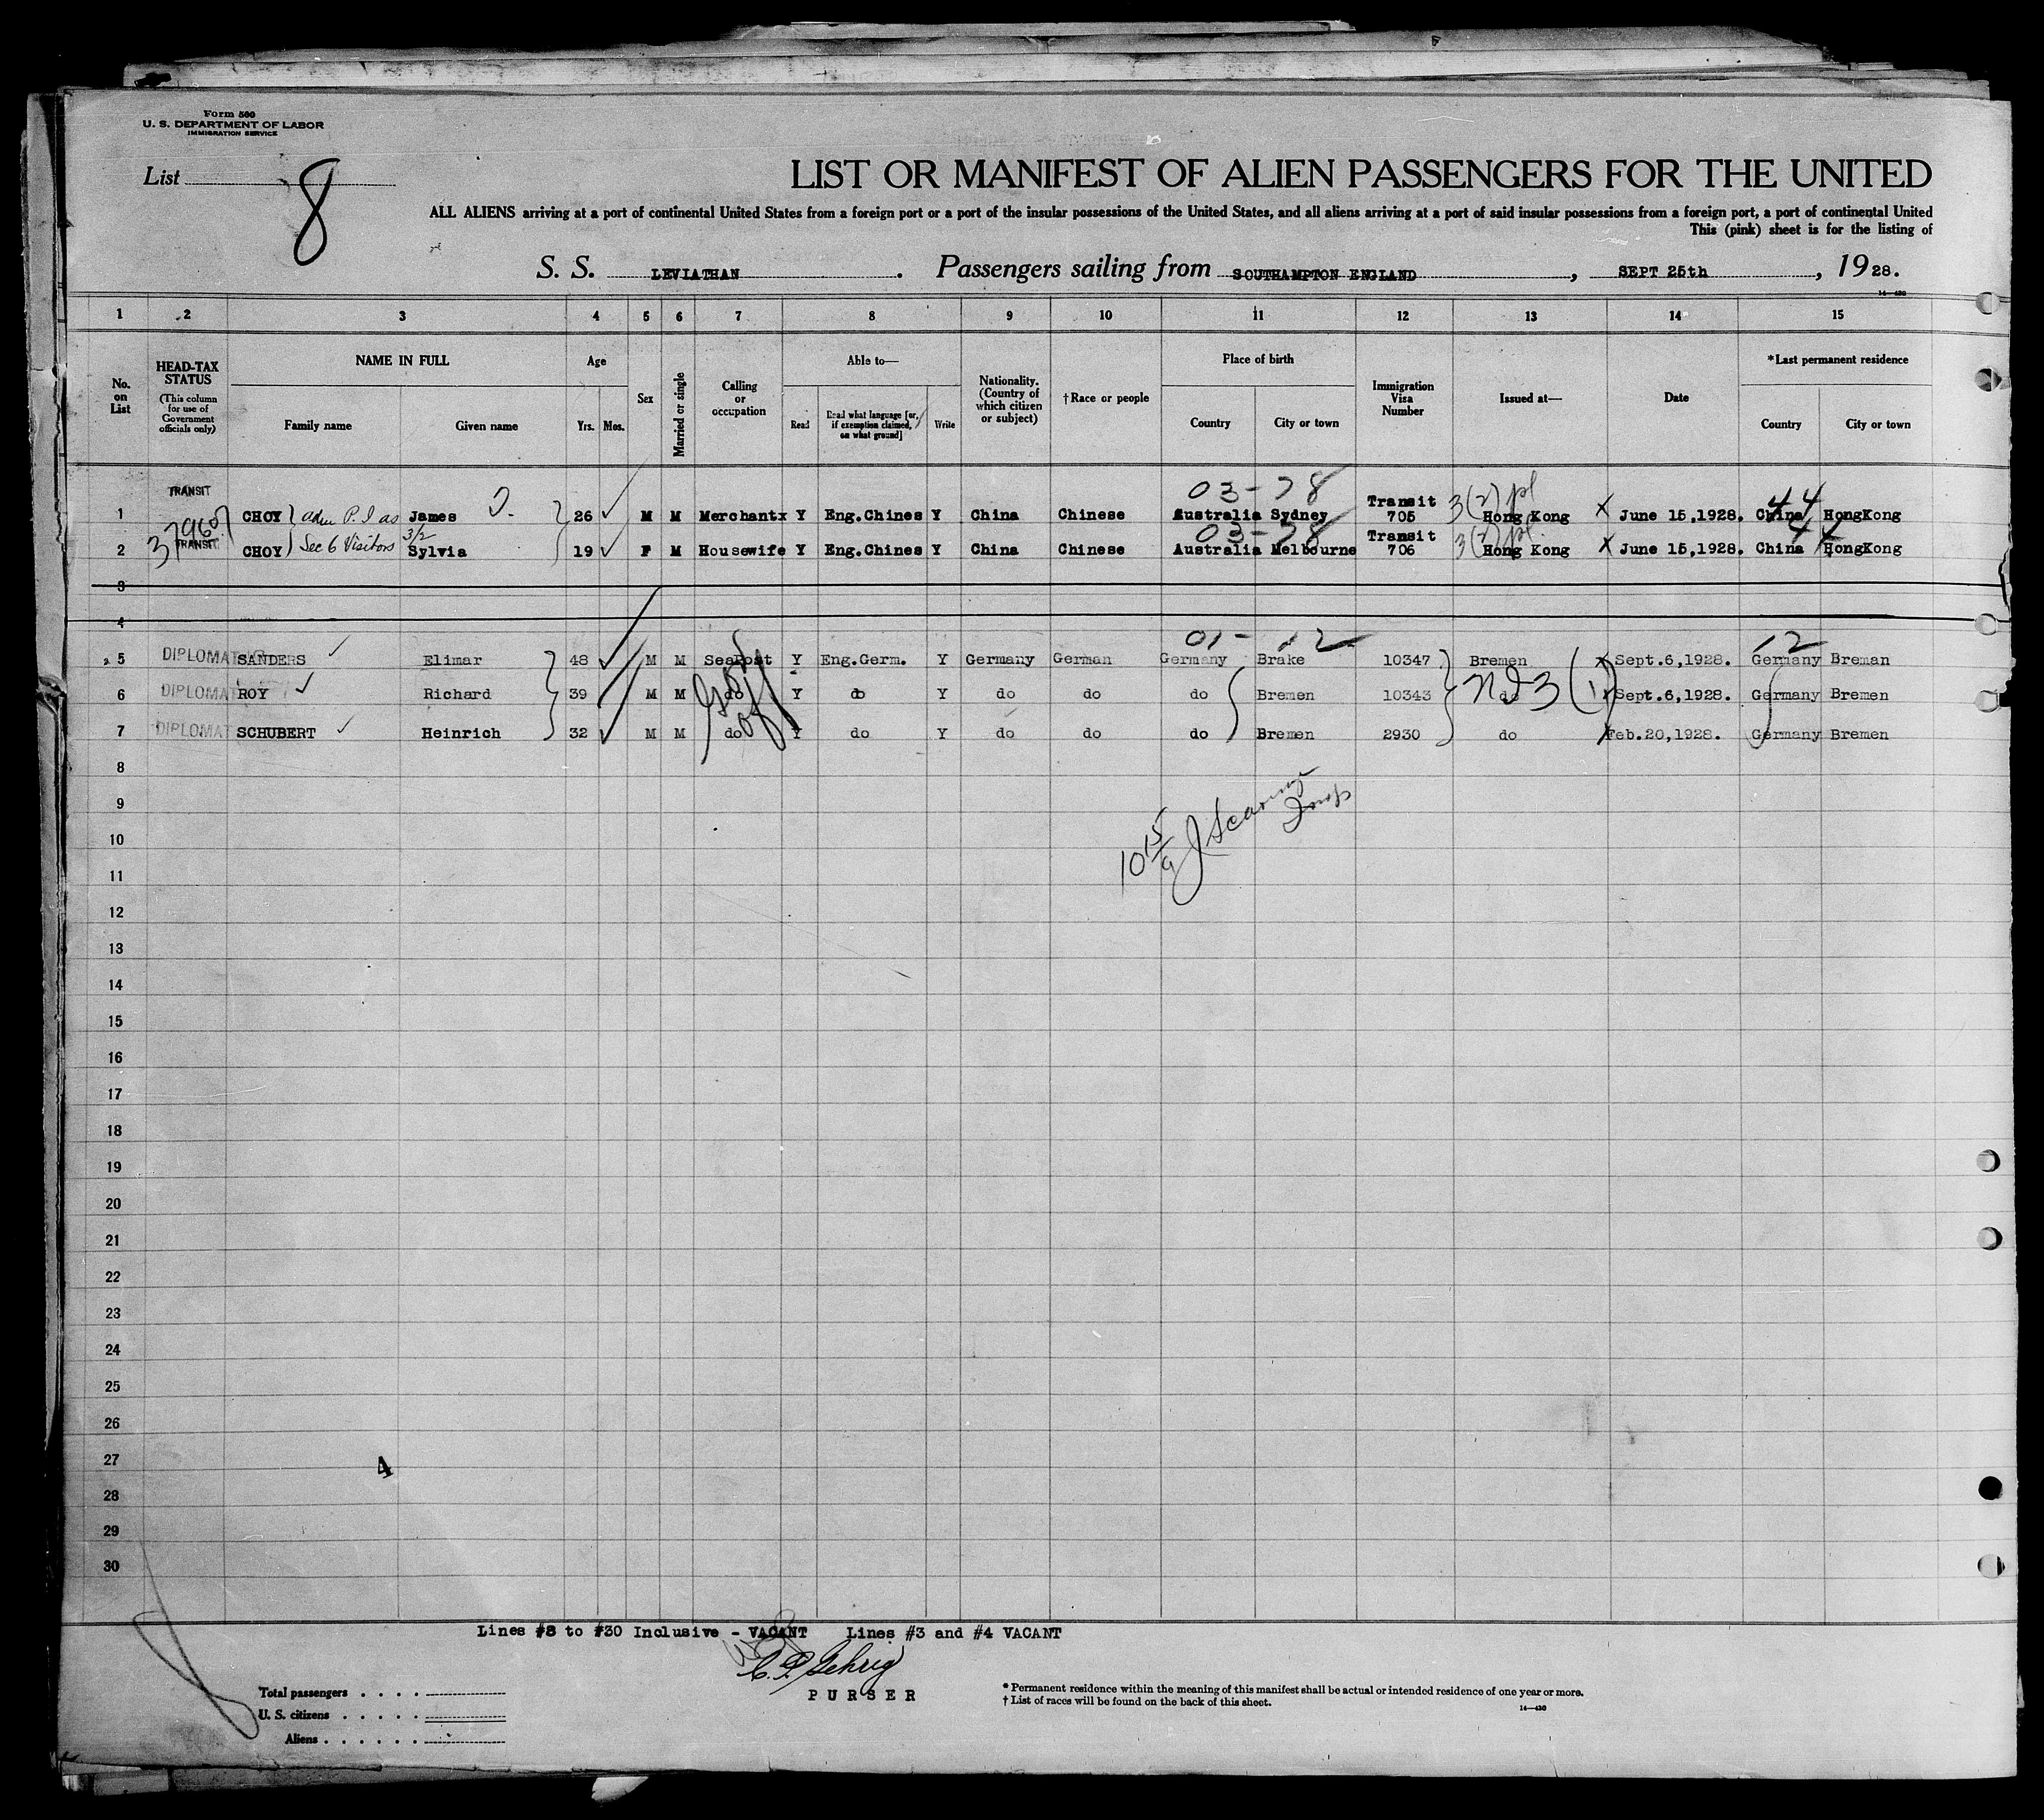 Form 500
U. S. DEPARTMENT OF LABOR
IMMIGRATION SERVICE
List 8
LIST OR MANIFEST OF ALIEN PASSENGERS FOR THE UNITED
ALL ALIENS arriving at a port of continental United States from a foreign port or a port of the insular possessions of the United States, and all aliens arriving at a port of said insular possessions from a foreign port, a port of continental United
This (pink) sheet is for the listing of
S. S. LEVIATHAN . Passengers sailing from SOUTHAMPTON ENGLAND , SEPT 25th , 19 28.
14—430
1 2 3 4 5 6 7 8 9 10 11 12 13 14 15
No. on List
HEAD-TAX STATUS (This column for use of Government officials only)
NAME IN FULL Family name Given name
Age Yrs. Mos.
Sex
Married or single
Calling or occupation
Able to— Read Read what language [or, if exemption claimed, on what ground] Write
Nationality. (Country of which citizen or subject)
†Race or people
Place of birth Country City or town
Immigration Visa Number
Issued at—
Date
*Last permanent residence Country City or town
TRANSIT 03-78 Transit 3(2) pl 44
1 CHOY adm P. I as James 26 M M Merchantx Y Eng.Chines Y China Chinese Australia Sydney 705 Hong Kong X June 15,1928. China HongKong
3/2 03-78 Transit 3(2) pl. 44
2 TRANSIT CHOY Sec 6 Visitors Sylvia 19 F M Housewife Y Eng.Chines Y China Chinese Australia Melbourne 706 Hong Kong X June 15,1928. China HongKong
3
4
01- 12 12
5 DIPLOMAT SANDERS Elimar 48 M M Seapost Y Eng.Germ. Y Germany German Germany Brake 10347 Bremen X Sept.6,1928. Germany Breman
6 DIPLOMAT ROY Richard 39 M M do Y do Y do do do Bremen 10343 do Sept.6,1928. Germany Bremen
3 (1)
7 DIPLOMAT SCHUBERT Heinrich 32 M M do Y do Y do do do Bremen 2930 do Feb.20,1928. Germany Bremen
8
9
10
11
12
13
14
15
16
17
18
19
20
21
22
23
24
25
26
27
4
28
29
30
Lines #8 to #30 Inclusive - VACANT Lines #3 and #4 VACANT
C. P. Gehrig
PURSER
Total passengers . . . .
U. S. citizens . . . . .
Aliens . . . . . .
* Permanent residence within the meaning of this manifest shall be actual or intended residence of one year or more.
† List of races will be found on the back of this sheet.
14—430